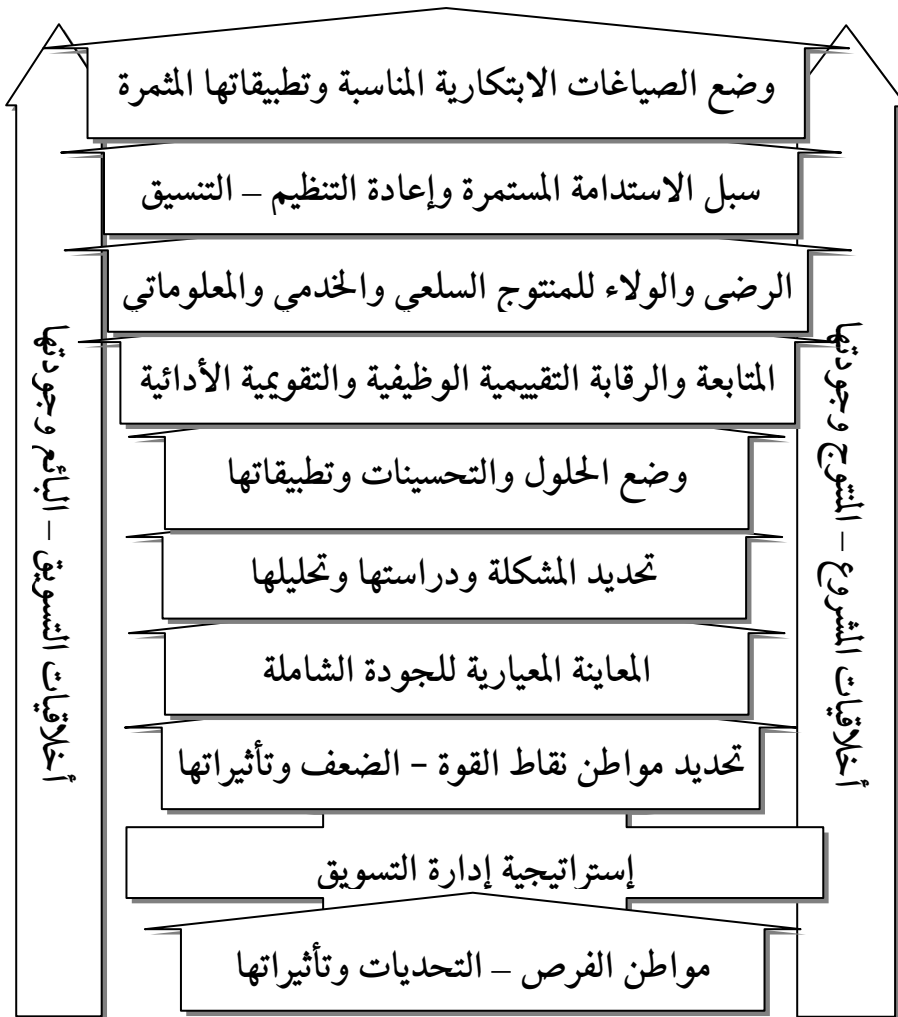 وضع الصياغات الابتكارية المناسبة وتطبيقاتها المثمرة
سبل الاستدامة المستمرة وإعادة التنظيم – التنسيق
الرضى والولاء للمنتوج السلعي والخدمي والمعلوماتي
المتابعة والرقابة التقييمية الوظيفية والتقويمية الأدائية
وضع الحلول والتحسينات وتطبيقاتها
تحديد المشكلة ودراستها وتحليلها
المعاينة المعيارية للجودة الشاملة
تحديد مواطن نقاط القوة – الضعف وتأثيراتها
إستراتيجية إدارة التسويق
مواطن الفرص – التحديات وتأثيراتها
أخلاقيات المشروع – المنتوج وجودتها
أخلاقيات التسويق – البائع وجودتها